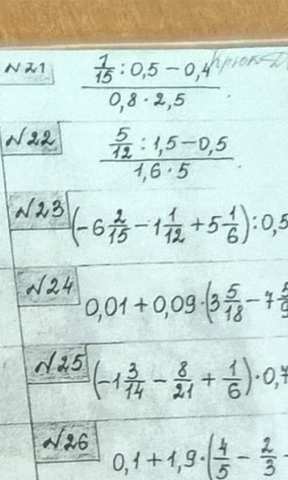 №21 (7/15 : 0,5 − 0,4) / (0,8 · 2,5)
№22 (5/12 : 1,5 − 0,5) / (1,6 · 5)
№23 (−6 2/15 − 1 1/12 + 5 1/6) : 0,5
№24 0,01 + 0,09 · (3 5/18 − 7 5/9
№25 (−1 3/14 − 8/21 + 1/6) · 0,7
№26 0,1 + 1,9 · (4/5 − 2/3 −